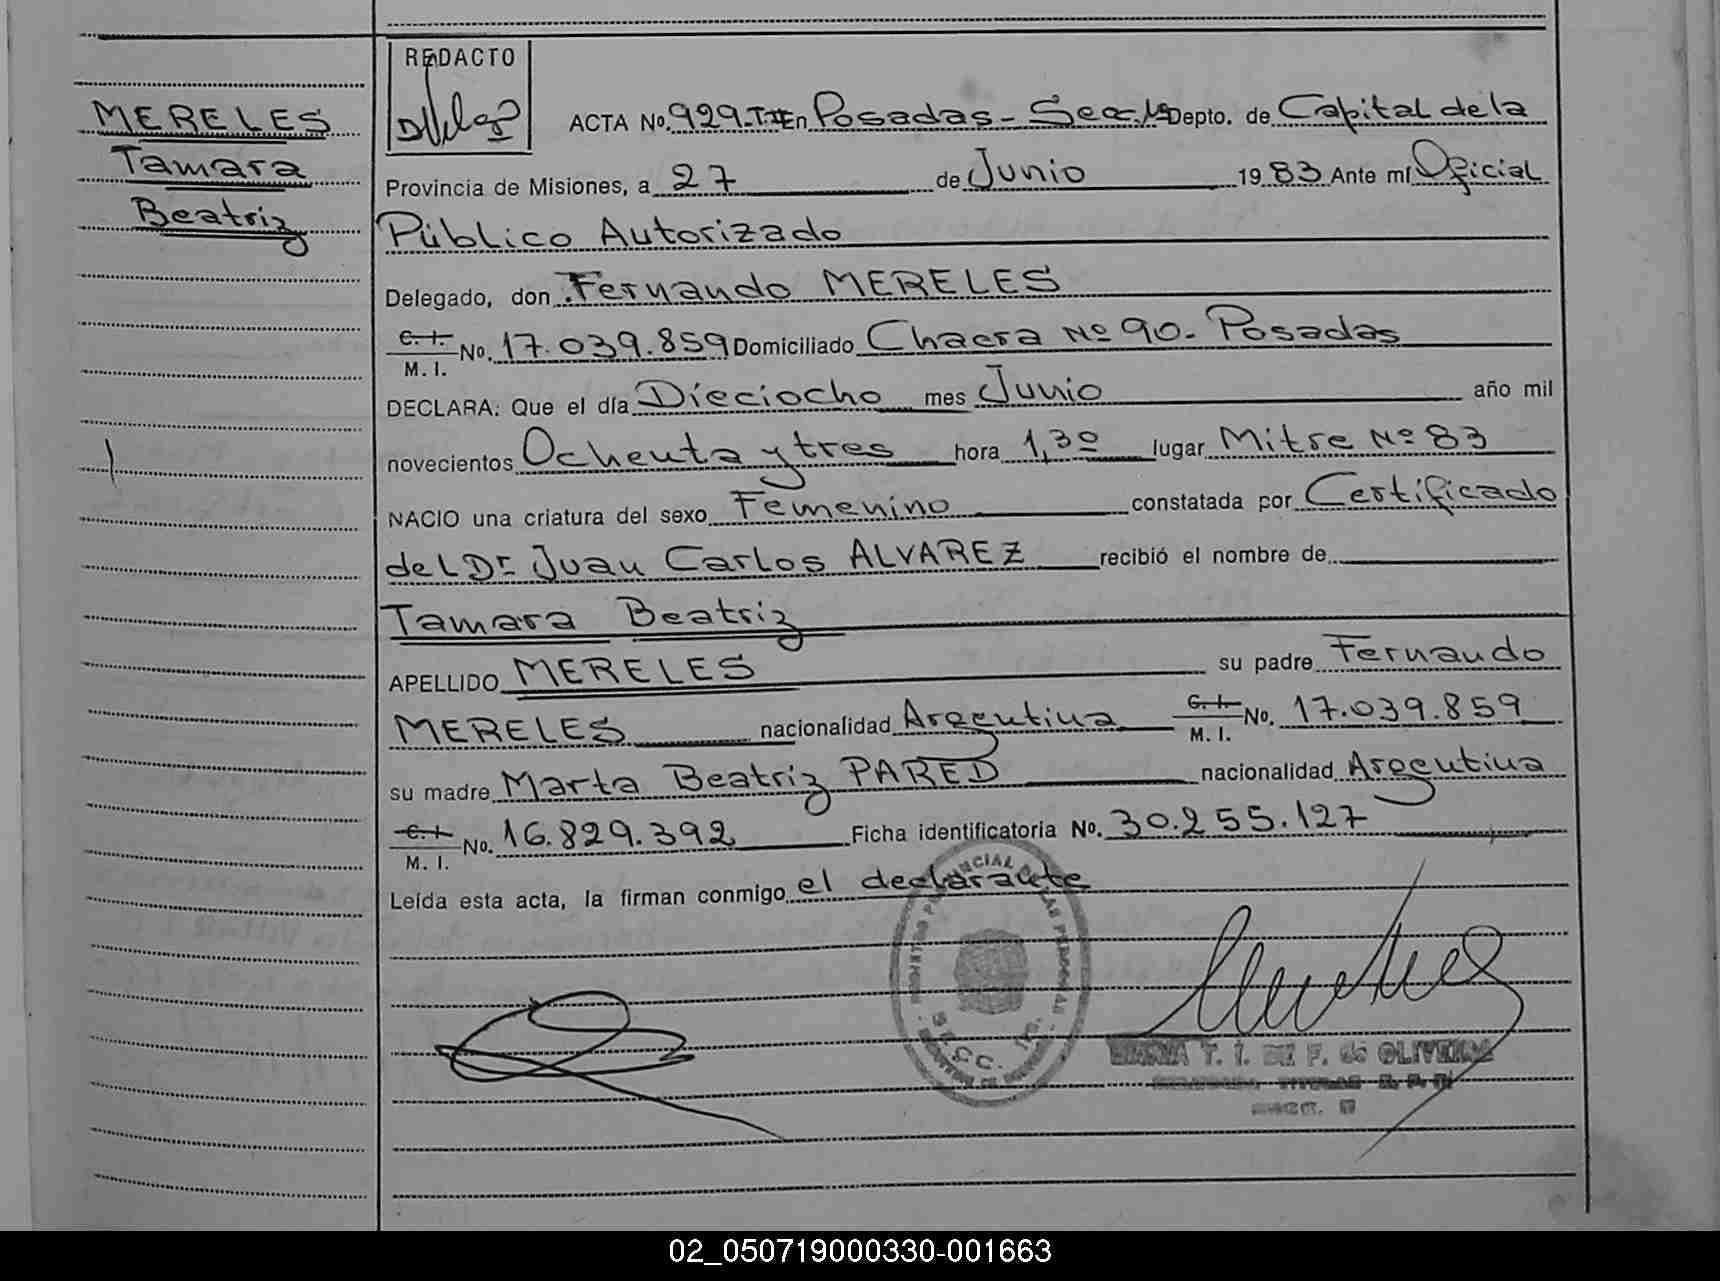 REDACTO
MERELES
Tamara
Beatriz
ACTA No. 929-T En Posadas - Secc. Depto. de Capital de la
Provincia de Misiones, a 27 de Junio 1983 Ante mí Oficial
Público Autorizado
Delegado, don Fernando MERELES
C. I.
M. I. No. 17.039.859 Domiciliado Chacra Nº 90.- Posadas
DECLARA: Que el día Dieciocho mes Junio año mil
novecientos Ochenta y tres hora 1,30 lugar Mitre Nº 83
NACIO una criatura del sexo Femenino constatada por Certificado
del Dr Juan Carlos ALVAREZ recibió el nombre de
Tamara Beatriz
APELLIDO MERELES su padre Fernando
MERELES nacionalidad Argentina C. I.
M. I. No. 17.039.859
su madre Marta Beatriz PARED nacionalidad Argentina
C. I.
M. I. No. 16.829.392 Ficha identificatoria No. 30.255.127
Leída esta acta, la firman conmigo el declarante
REGISTRO PROVINCIAL DE LAS PERSONAS
SECC. 1ra.
T. I. DE F. de OLIVEIRA
SECC.
02_050719000330-001663